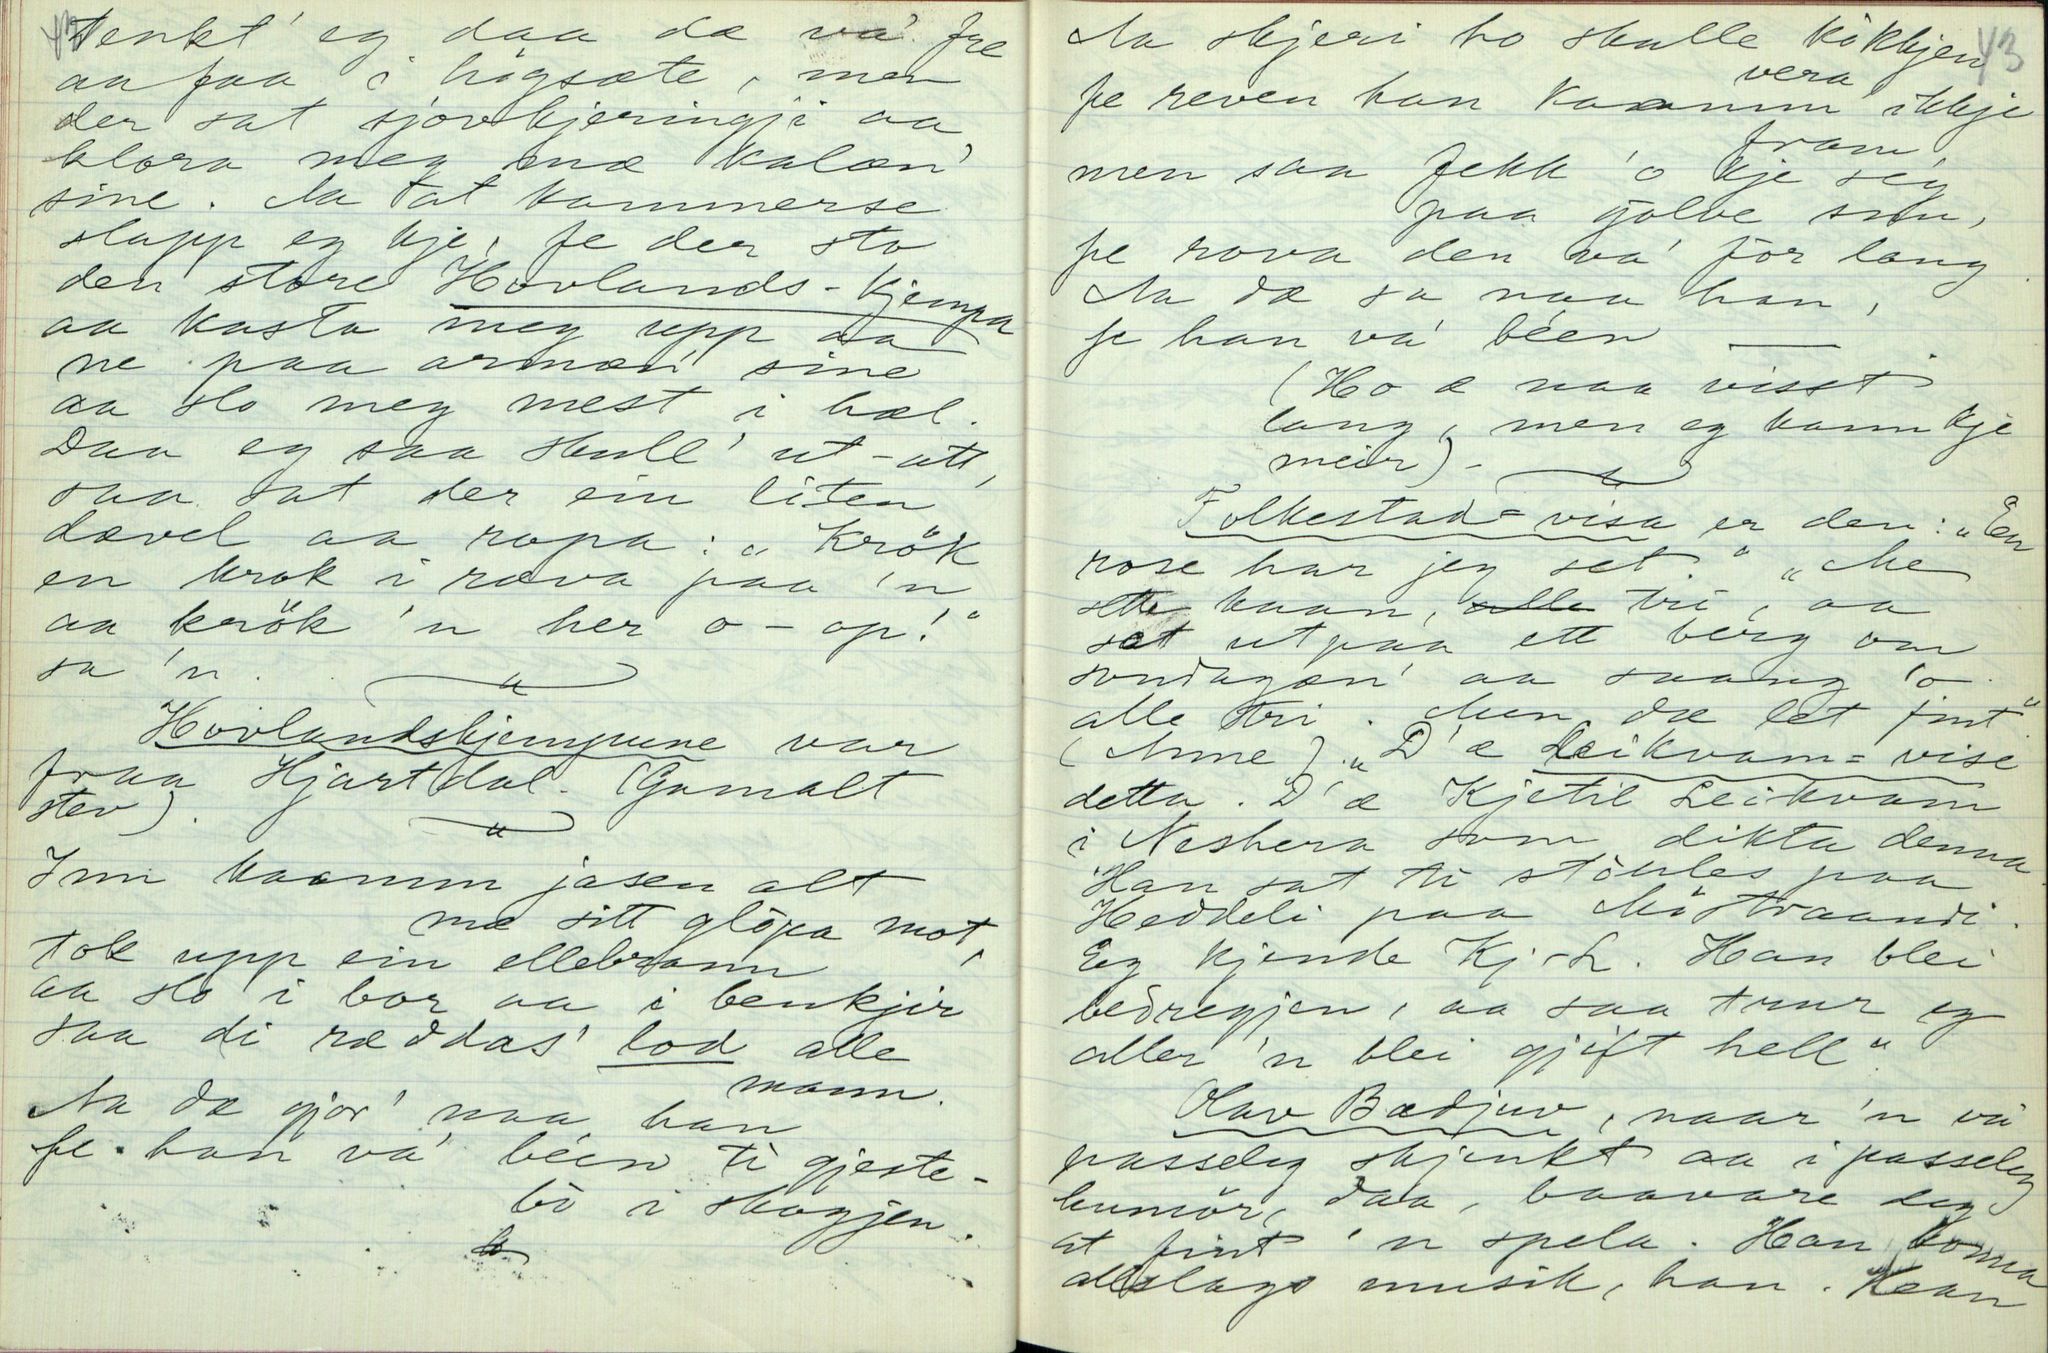 42
tenkt' eg daa dæ va' fre
aa faa i högsæte, men
der sat sjövkjeringji aa
klora meg mæ kalæn'
sine. Aa tat kammerse
slapp eg kje, fe der sto
den store Hovlands-kjempa
aa kasta meg upp aa
ne paa armæn' sine
aa slo meg mest i hæl.
Daa eg saa skull' ut-att,
saa sat der ein liten
dævel aa ropa: „Krök
en krok i ræva paa 'n
aa krök 'n her o-op!"
sa 'n.
Hovlandskjempune var
fraa Hjartdal. (Gamalt
stev).
Inn kaamm jasen alt
mæ sitt glöpa mot,
tok upp ein ellebrann
aa slo i bor aa i benkjir
saa di ræddas' lod alle
mann.
Aa dæ gjor' naa han
fe han va' béen ti gjeste-
bö i skogjen.
43
Aa skjeri ho skulle kökkjen
vera
fe reven han kaamm ikkje
fram
men saa fekk 'o kje seg
paa golve snu,
fe rova den va' for lang
Aa dæ sa naa han,
fe han va' béen —
(Ho æ naa visst
lang, men eg kann kje
meir) -
Folkestad-visa er den: „En
rose har jeg set." „Me
sette kaan, alle tri, aa
sat utpaa ett berg om
sondagæn' aa saang 'o
alle tri. Men dæ let fint"
(Anne). „D'æ Leikvam-vise
detta. D'æ Kjetil Leikvam
i Neshera som dikta denna.
Han sat ti stöhles paa
Heddeli paa Möstraandi.
Eg kjende Kj-L. Han blei
bedregjen, aa saa trur eg
aller 'n blei gjift hell"
Olav Bædjuv, naar 'n va
passeleg skjenkt aa i passeleg
humör, daa, baavare deg
at fint 'n spela. Han konna
allslags musik, han. Kaan